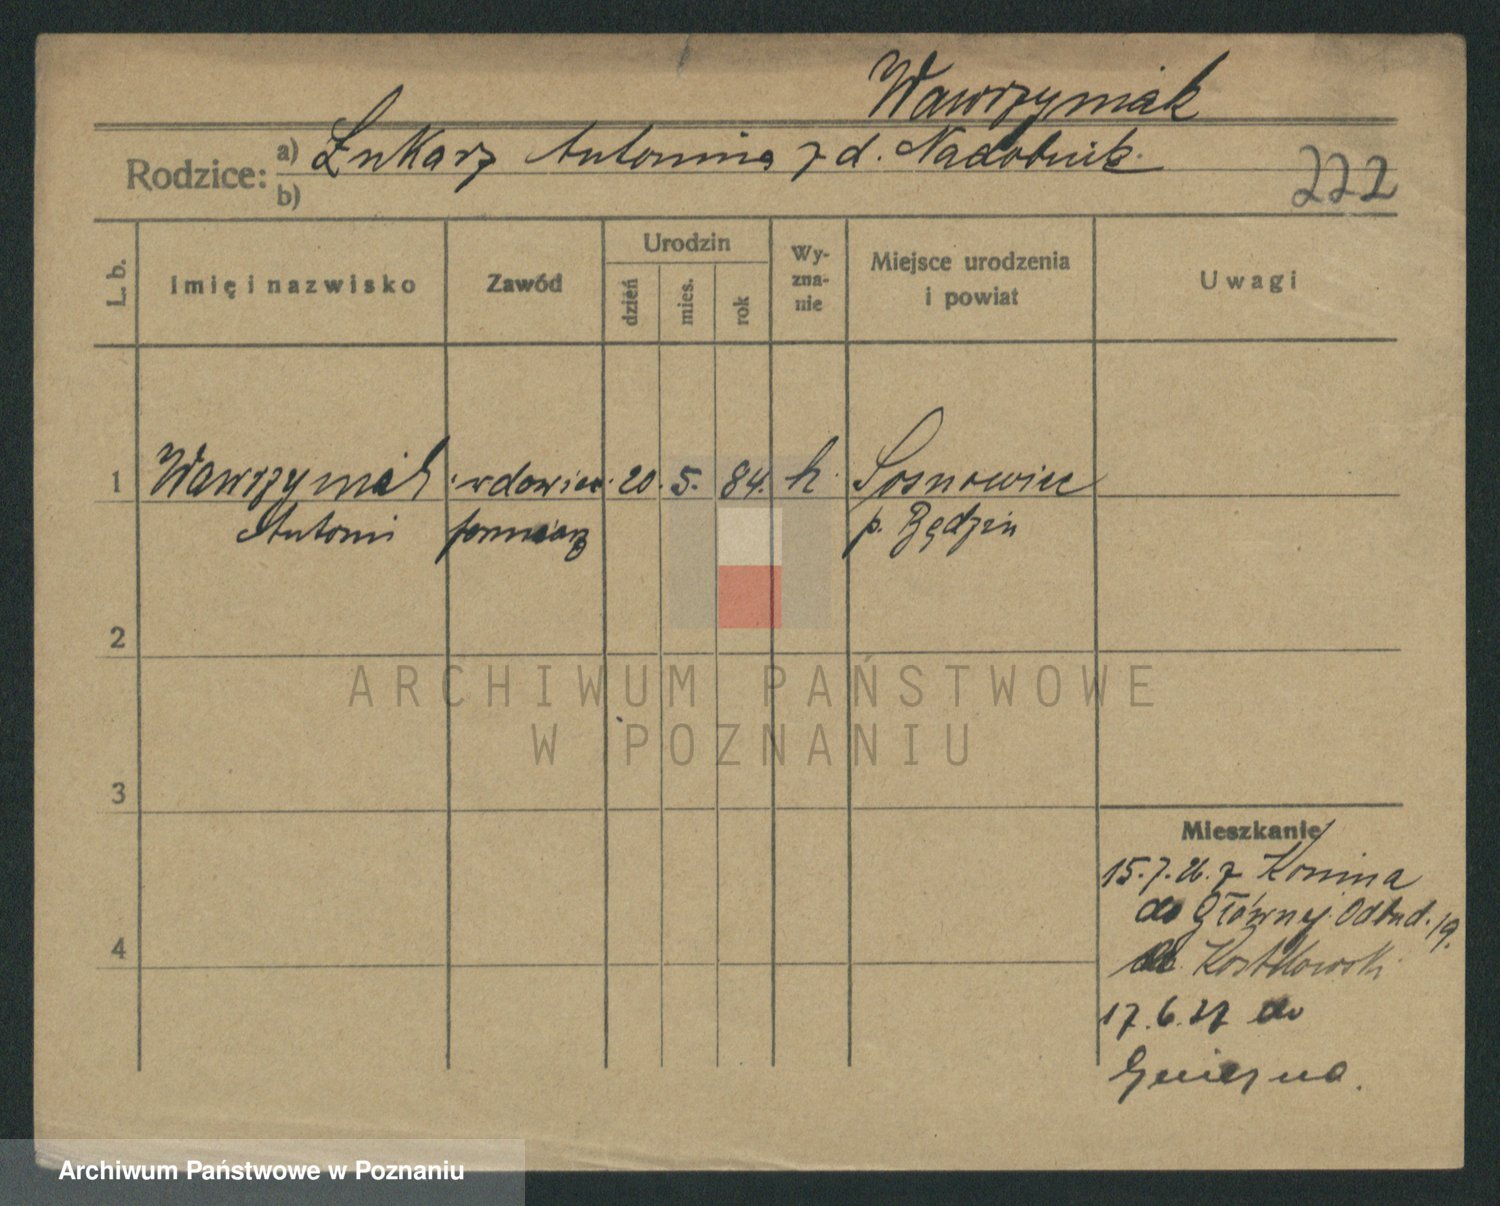 Wawrzyniak
Rodzice: a) Łukarz Antonina z d. Nadobnik
b)
222
L. b.
Imię i nazwisko
Zawód
Urodzin
dzień
mies.
rok
Wy-
zna-
nie
Miejsce urodzenia
i powiat
Uwagi
1 Wawrzyniak wdowiec 20. 5. 84. k. Sosnowiec
Antoni forniarz p. Będzin
2
3
4
Mieszkanie
15.7.26. z Konina
do Głównej Odbud. 19.
17.6.27 do
Gniezna.
ARCHIWUM PAŃSTWOWE
W POZNANIU
Archiwum Państwowe w Poznaniu